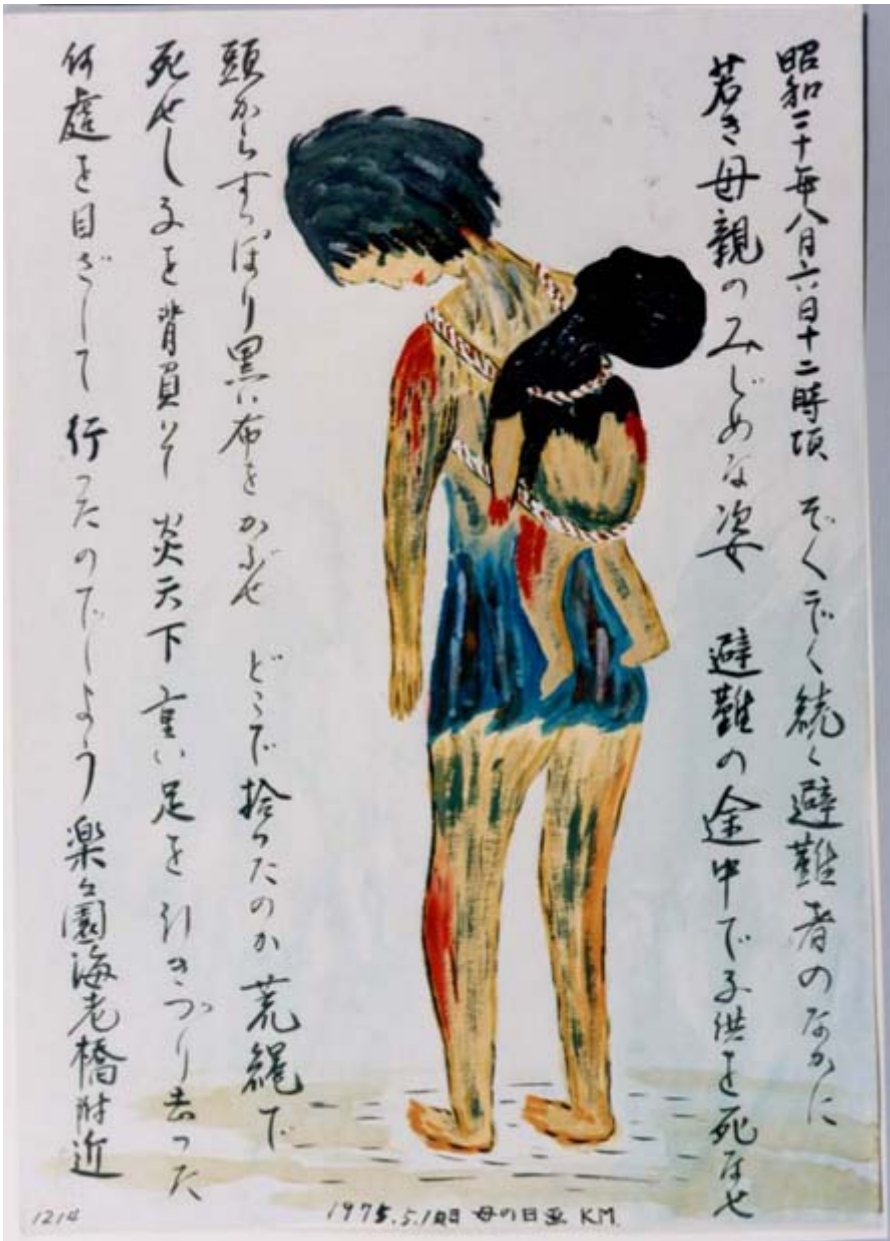 昭和二十年八月六日十二時頃 ぞくぞく続く避難者のなかに
若き母親のみじめな姿 避難の途中で子供を死なせ
頭からすっぽり黒い布をかぶせ どこで拾ったのか荒縄で
死せし子を背負いて 炎天下重い足を引きづり去った
何處を目ざして行ったのでしよう 楽々園海老橋附近
1975.5.1 母の日 K.M.
1214